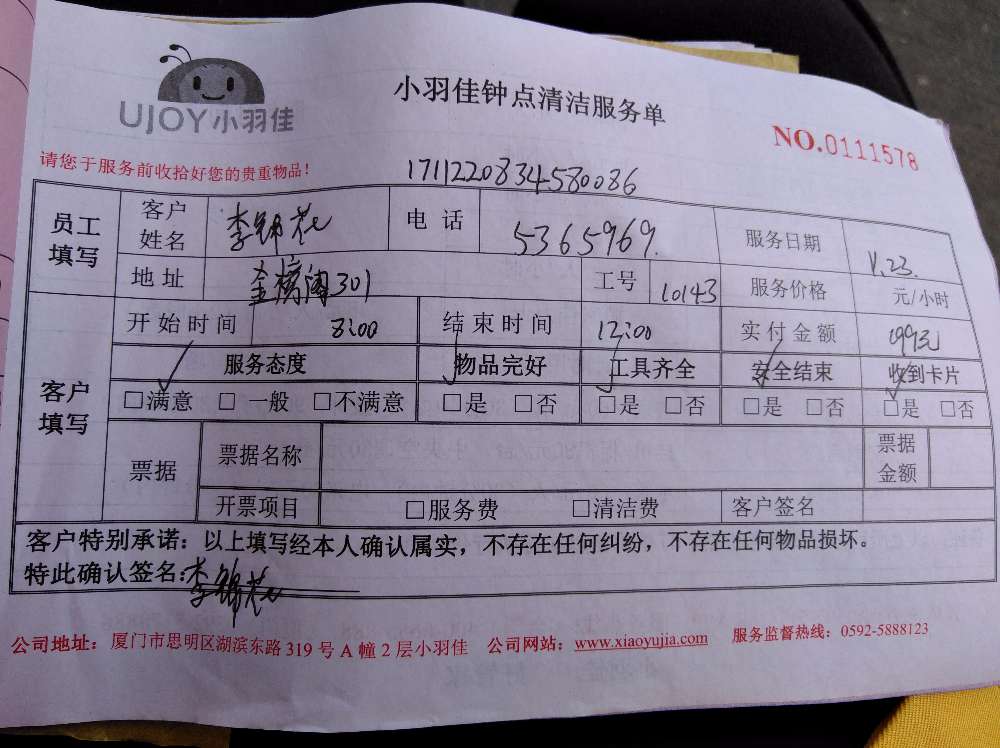 UJOY小羽佳
小羽佳钟点清洁服务单
NO.0111578
请您于服务前收拾好您的贵重物品!
1711220834580086
员工填写 客户姓名 李锦花 电话 5365969. 服务日期 V.23.
地址 301 工号 10143 服务价格 元/小时
客户填写 开始时间 8:00 结束时间 12:00 实付金额
服务态度 物品完好 工具齐全 安全结束 收到卡片
□满意 □一般 □不满意 □是 □否 □是 □否 □是 □否 □是 □否
票据 票据名称 票据金额
开票项目 □服务费 □清洁费 客户签名
客户特别承诺:以上填写经本人确认属实,不存在任何纠纷,不存在任何物品损坏。
特此确认签名:李锦花
公司地址:厦门市思明区湖滨东路319号A幢2层小羽佳 公司网站:www.xiaoyujia.com 服务监督热线:0592-5888123